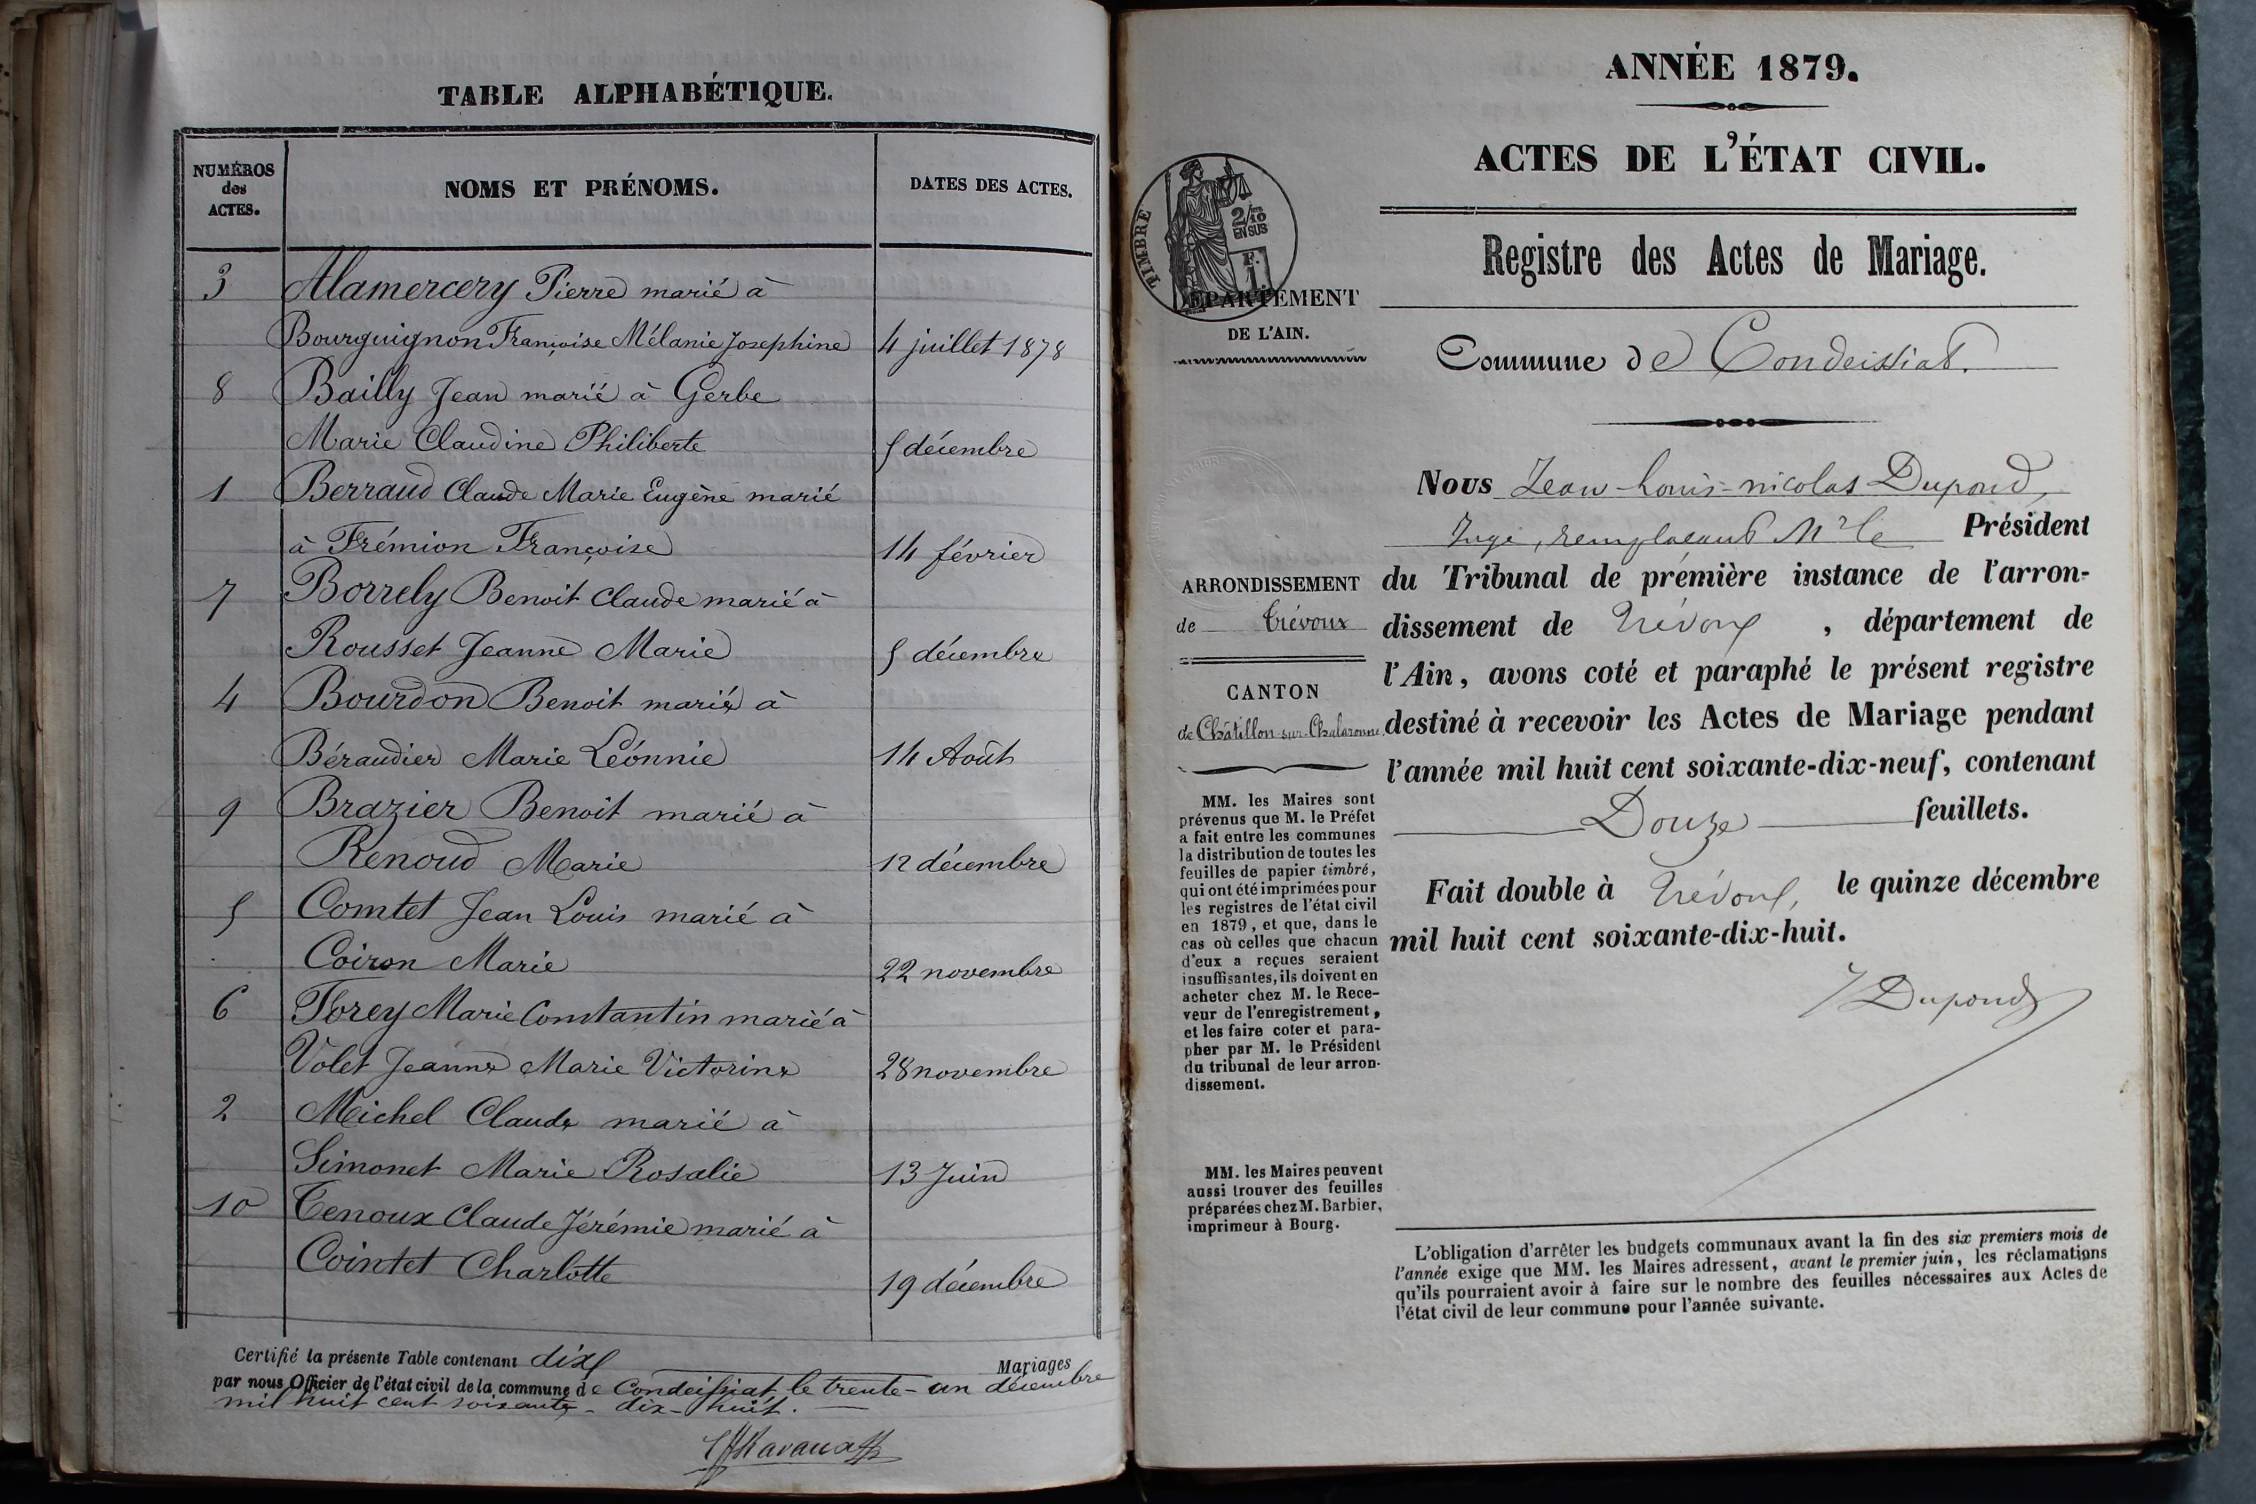 TABLE ALPHABÉTIQUE.
NUMÉROS des ACTES.
NOMS ET PRÉNOMS.
DATES DES ACTES.
3 Alamercery Pierre marié à
Bourguignon Françoise Mélanie Josephine 4 juillet 1878
8 Bailly Jean marié à Gerbe
Marie Claudine Philiberte 5 décembre
1 Berraud Claude Marie Eugène marié
à Frémion Françoise 14 février
7 Borrely Benoit Claude marié à
Rousset Jeanne Marie 5 décembre
4 Bourdon Benoit marié à
Béraudier Marie Léonnie 14 Août
9 Brazier Benoit marié à
Renoud Marie 12 décembre
5 Comtet Jean Louis marié à
Coiron Marie 22 novembre
6 Forey Marie Constantin marié à
Volet Jeanne Marie Victorine 28 novembre
2 Michel Claude marié à
Simonet Marie Rosalie 13 Juin
10 Tenoux Claude Jérémie marié à
Cointet Charlotte 19 décembre
Certifié la présente Table contenant dix Mariages
par nous Officier de l'état civil de la commune de Condeissiat le trente-un décembre
mil huit cent soixante-dix-huit.
ANNÉE 1879.
ACTES DE L'ÉTAT CIVIL.
Registre des Actes de Mariage.
TIMBRE
2/10
EN SUS
F.
1
DÉPARTEMENT
DE L'AIN.
Commune de Condeissiat.
Nous Jean-Louis-nicolas Dupond,
Juge, remplaçant Mr le Président
du Tribunal de première instance de l'arron-
dissement de Trévoux, département de
l'Ain, avons coté et paraphé le présent registre
destiné à recevoir les Actes de Mariage pendant
l'année mil huit cent soixante-dix-neuf, contenant
Douze feuillets.
Fait double à Trévoux, le quinze décembre
mil huit cent soixante-dix-huit.
Dupond
ARRONDISSEMENT
de Trévoux
CANTON
de Châtillon-sur-Chalaronne.
MM. les Maires sont
prévenus que M. le Préfet
a fait entre les communes
la distribution de toutes les
feuilles de papier timbré,
qui ont été imprimées pour
les registres de l'état civil
en 1879, et que, dans le
cas où celles que chacun
d'eux a reçues seraient
insuffisantes, ils doivent en
acheter chez M. le Rece-
veur de l'enregistrement,
et les faire coter et para-
pher par M. le Président
du tribunal de leur arron-
dissement.
MM. les Maires peuvent
aussi trouver des feuilles
préparées chez M. Barbier,
imprimeur à Bourg.
L'obligation d'arrêter les budgets communaux avant la fin des six premiers mois de
l'année exige que MM. les Maires adressent, avant le premier juin, les réclamations
qu'ils pourraient avoir à faire sur le nombre des feuilles nécessaires aux Actes de
l'état civil de leur commune pour l'année suivante.